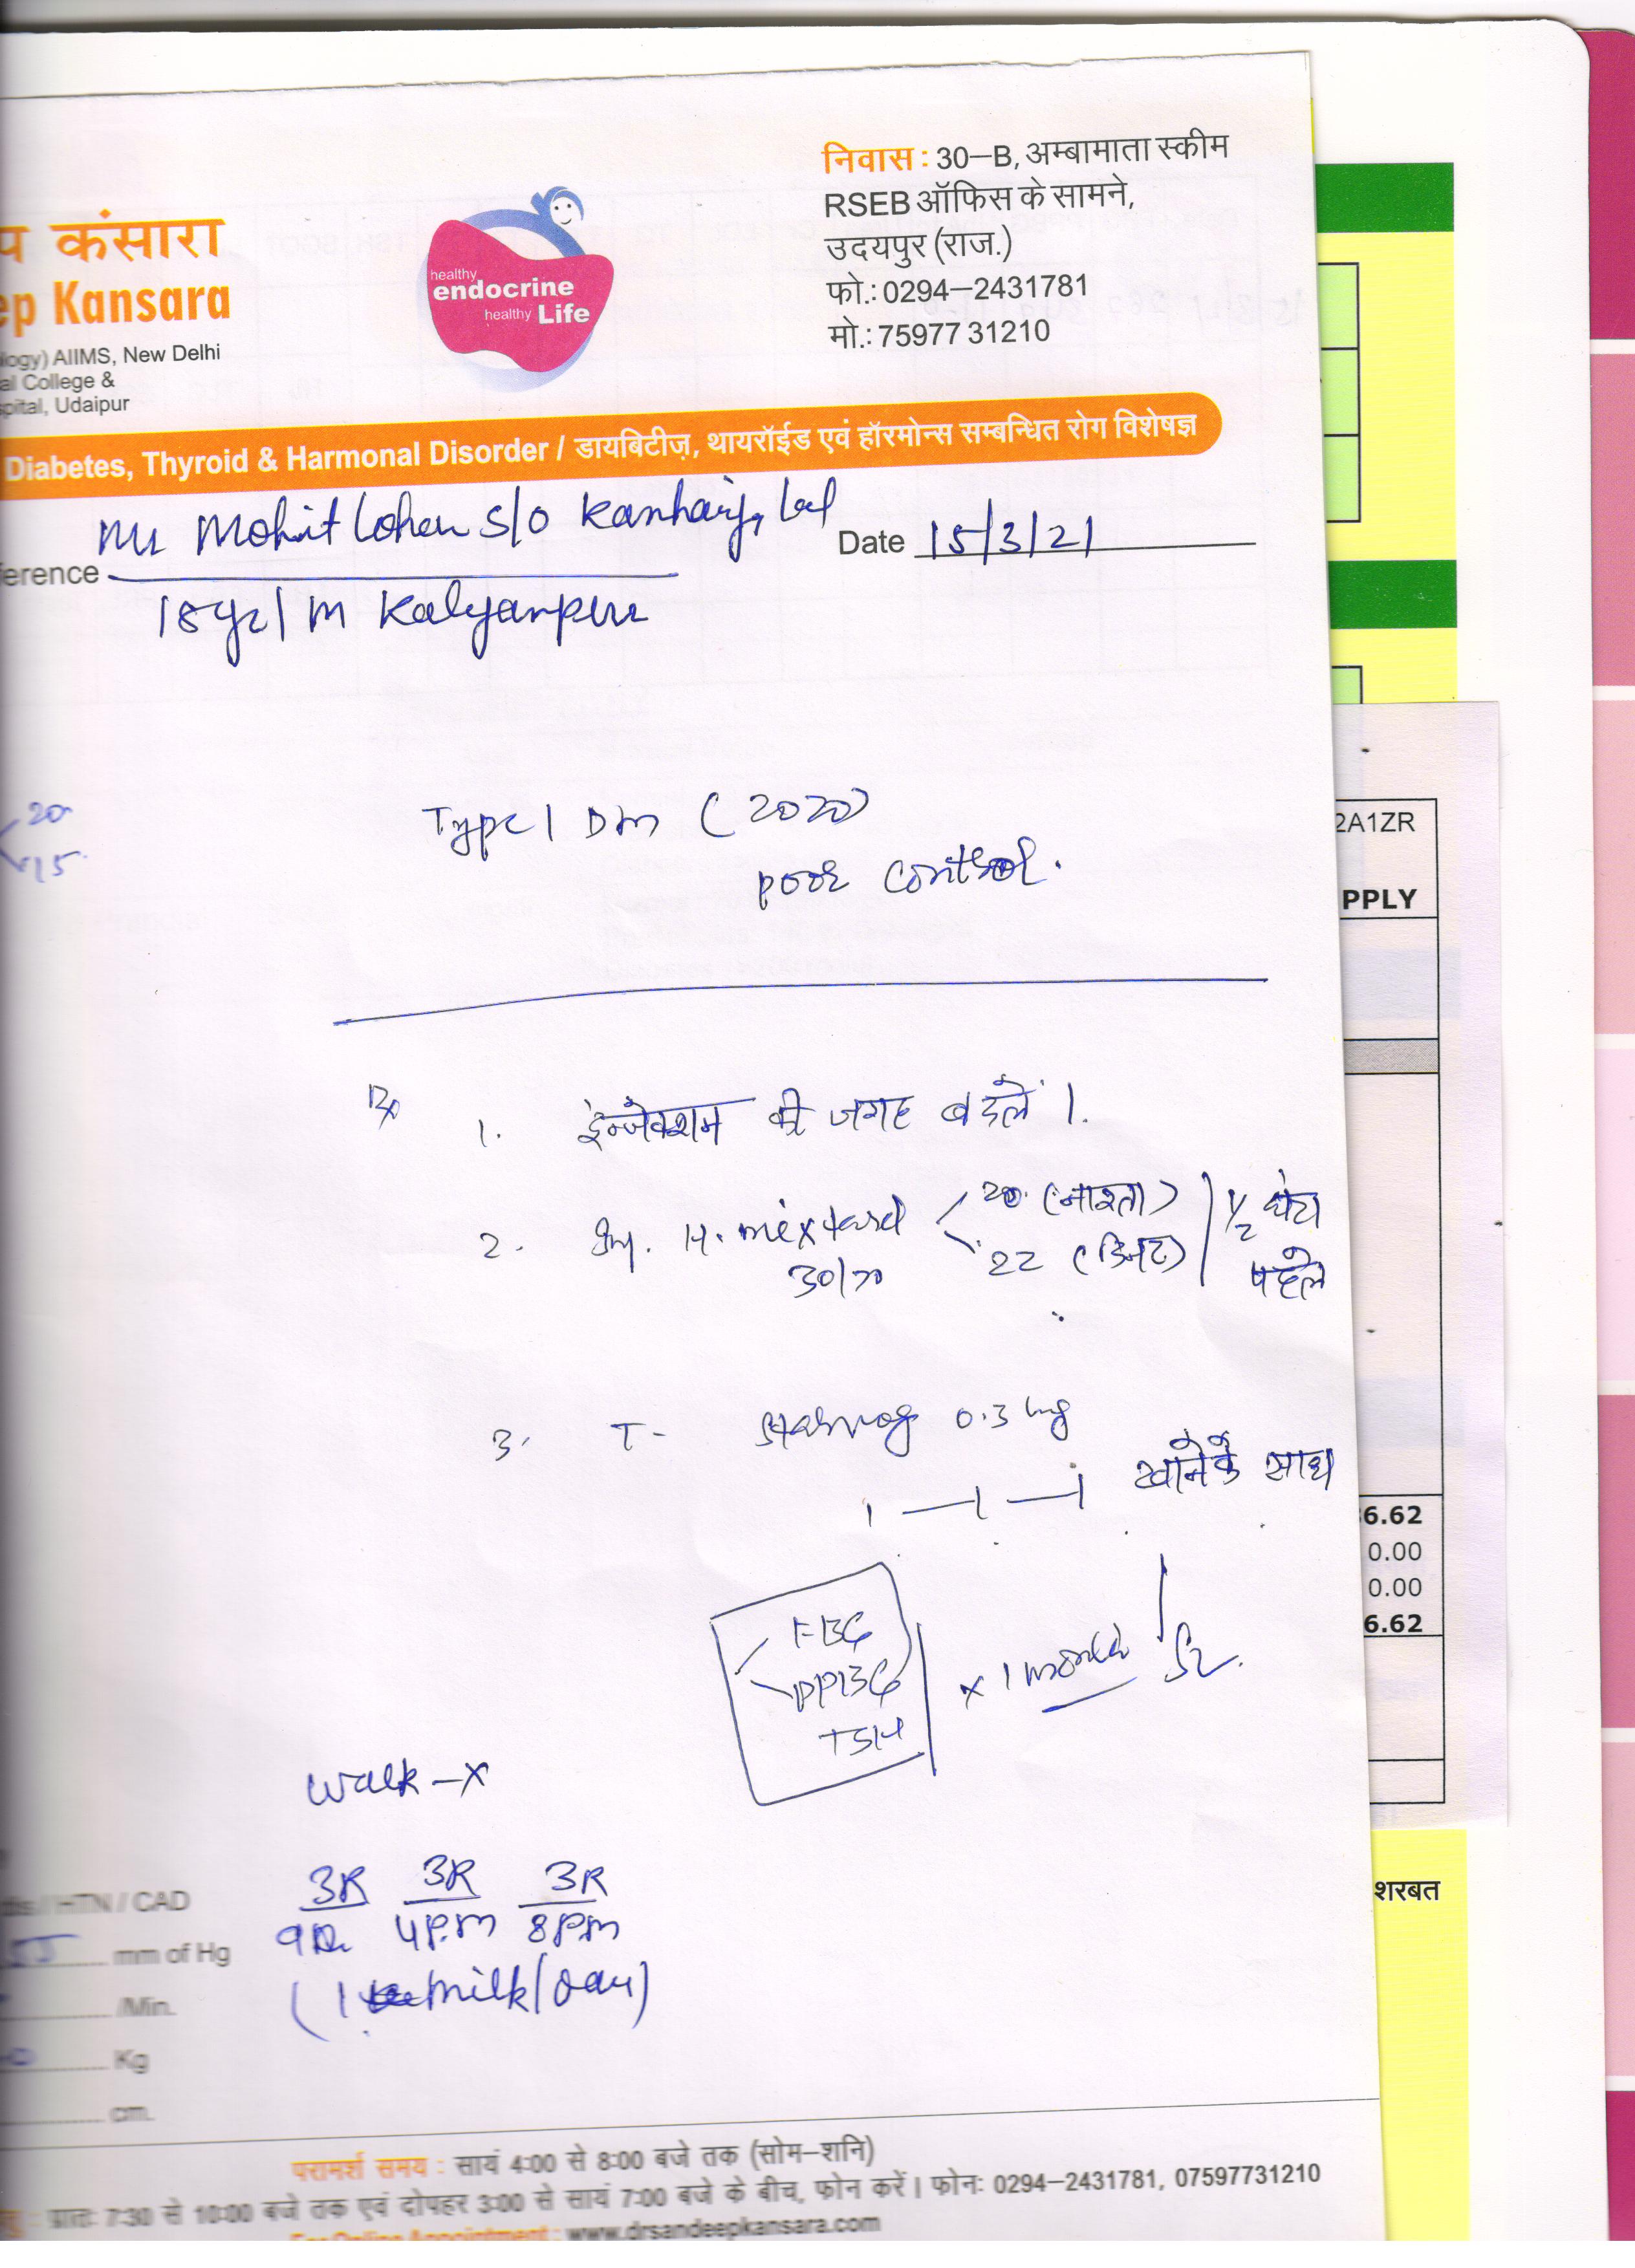 निवास : 30–B, अम्बामाता स्कीम
RSEB ऑफिस के सामने,
उदयपुर (राज.)
फो.: 0294–2431781
मो.: 75977 31210
प कंसारा
ep Kansara
logy) AIIMS, New Delhi
al College &
spital, Udaipur
healthy
endocrine
healthy Life
Diabetes, Thyroid & Harmonal Disorder / डायबिटीज़, थायरॉईड एवं हॉरमोन्स सम्बन्धित रोग विशेषज्ञ
Mr Mohit s/o
erence
Date 15/3/21
18yr/M Kalyanpur
20
15
Type 1 DM (2020)
poor control.
2A1ZR
PPLY
Rx
1. इन्जेक्शन की जगह बदलें ।
2. Inj. H. mixtard 20 (नाश्ता) 1/2 घंटा
30/70 22 (डिनर) पहले
3. T- 0.3 mg
1 — 1 — 1 खाने के साथ
6.62
0.00
0.00
6.62
FBG
PPBG
TSH
x 1 month
walk – x
3R 3R 3R
4P.m 8pm
(1 milk/day)
/ HTN / CAD
mm of Hg
/Min.
Kg
cm.
शरबत
परामर्श समय : सायं 4:00 से 8:00 बजे तक (सोम–शनि)
: प्रातः 7:30 से 10:00 बजे तक एवं दोपहर 3:00 से सायं 7:00 बजे के बीच, फोन करें। फोनः 0294–2431781, 07597731210
For Online Appointment : www.drsandeepkansara.com